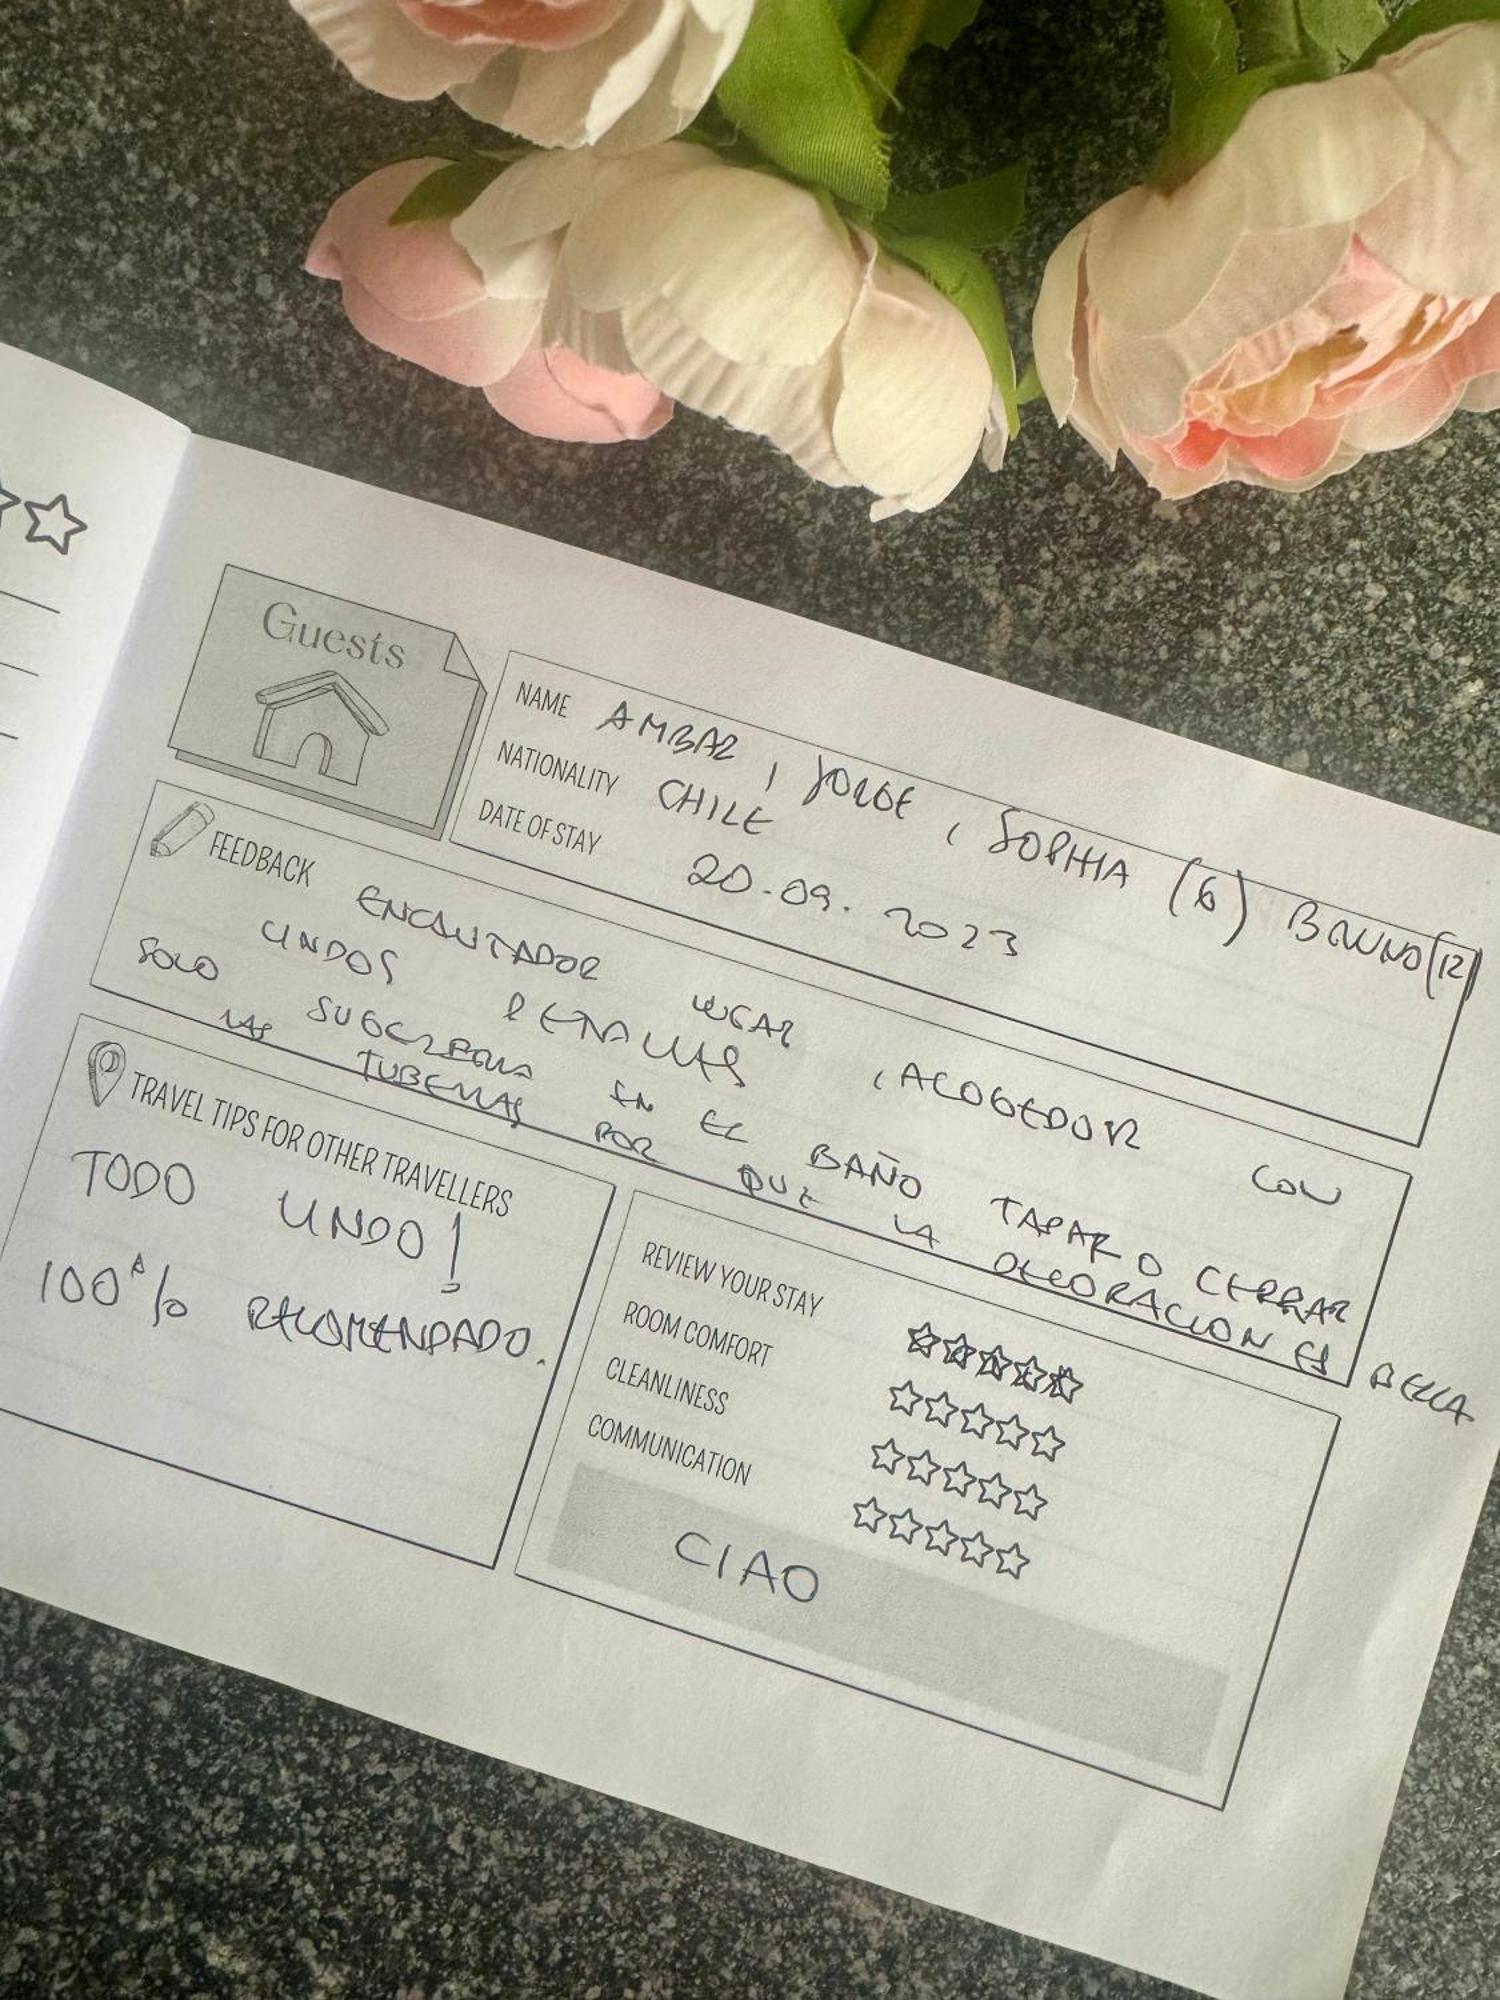 Guests
NAME AMBAR, JORGE, SOPHIA (6) BRUNO (12)
NATIONALITY CHILE
DATE OF STAY 20.09.2023
FEEDBACK ENCANTADOR LUGAR, ACOGEDOR CON
LINDOS DETALLES
SOLO SUGERERIA EN EL BAÑO TAPAR O CERRAR
LAS TUBERIAS POR QUE LA DECORACION ES BELLA
TRAVEL TIPS FOR OTHER TRAVELLERS
TODO LINDO!
100% RECOMENDADO.
REVIEW YOUR STAY
ROOM COMFORT
CLEANLINESS
COMMUNICATION
CIAO